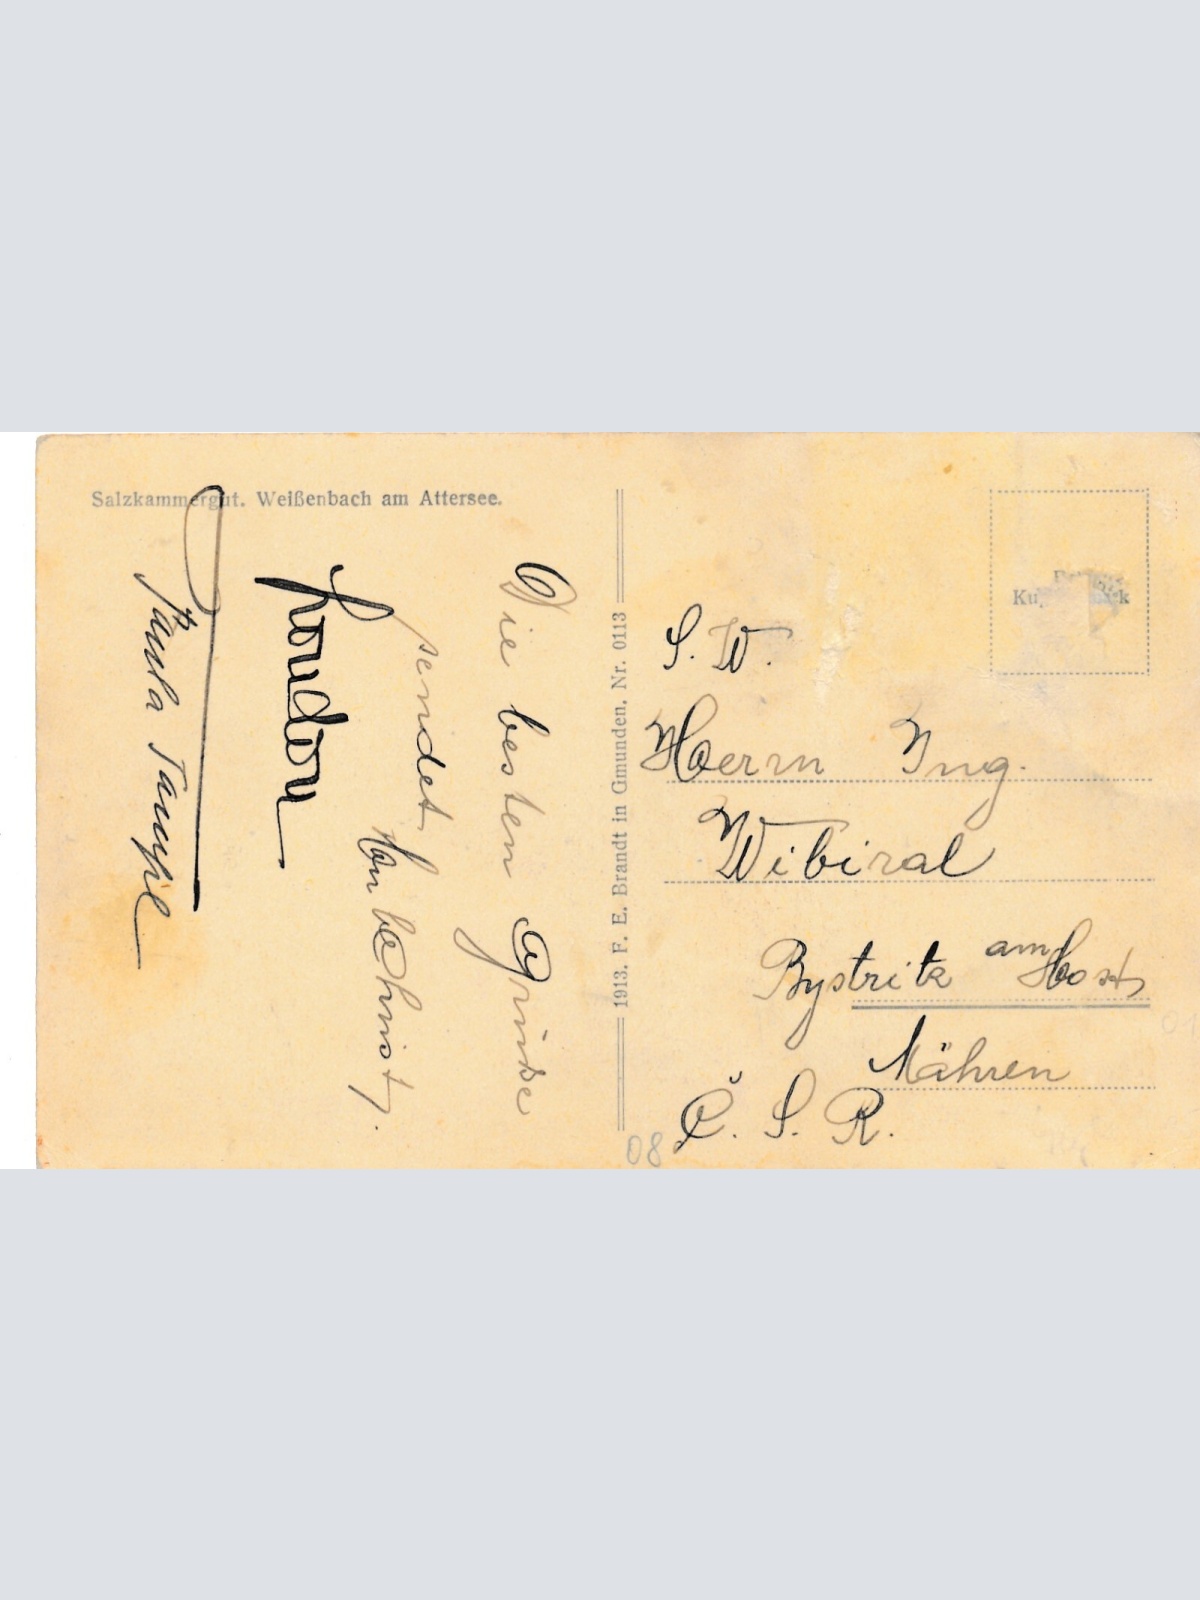 Salzkammergut. Weißenbach am Attersee.
Die besten Grüsse
sendet
Loudon
Paula Tampe
1913. F. E. Brandt in Gmunden. Nr. 0113
S. W.
Herrn Ing.
Wibiral
Bystritz am Host
Mähren
Č. S. R.
08